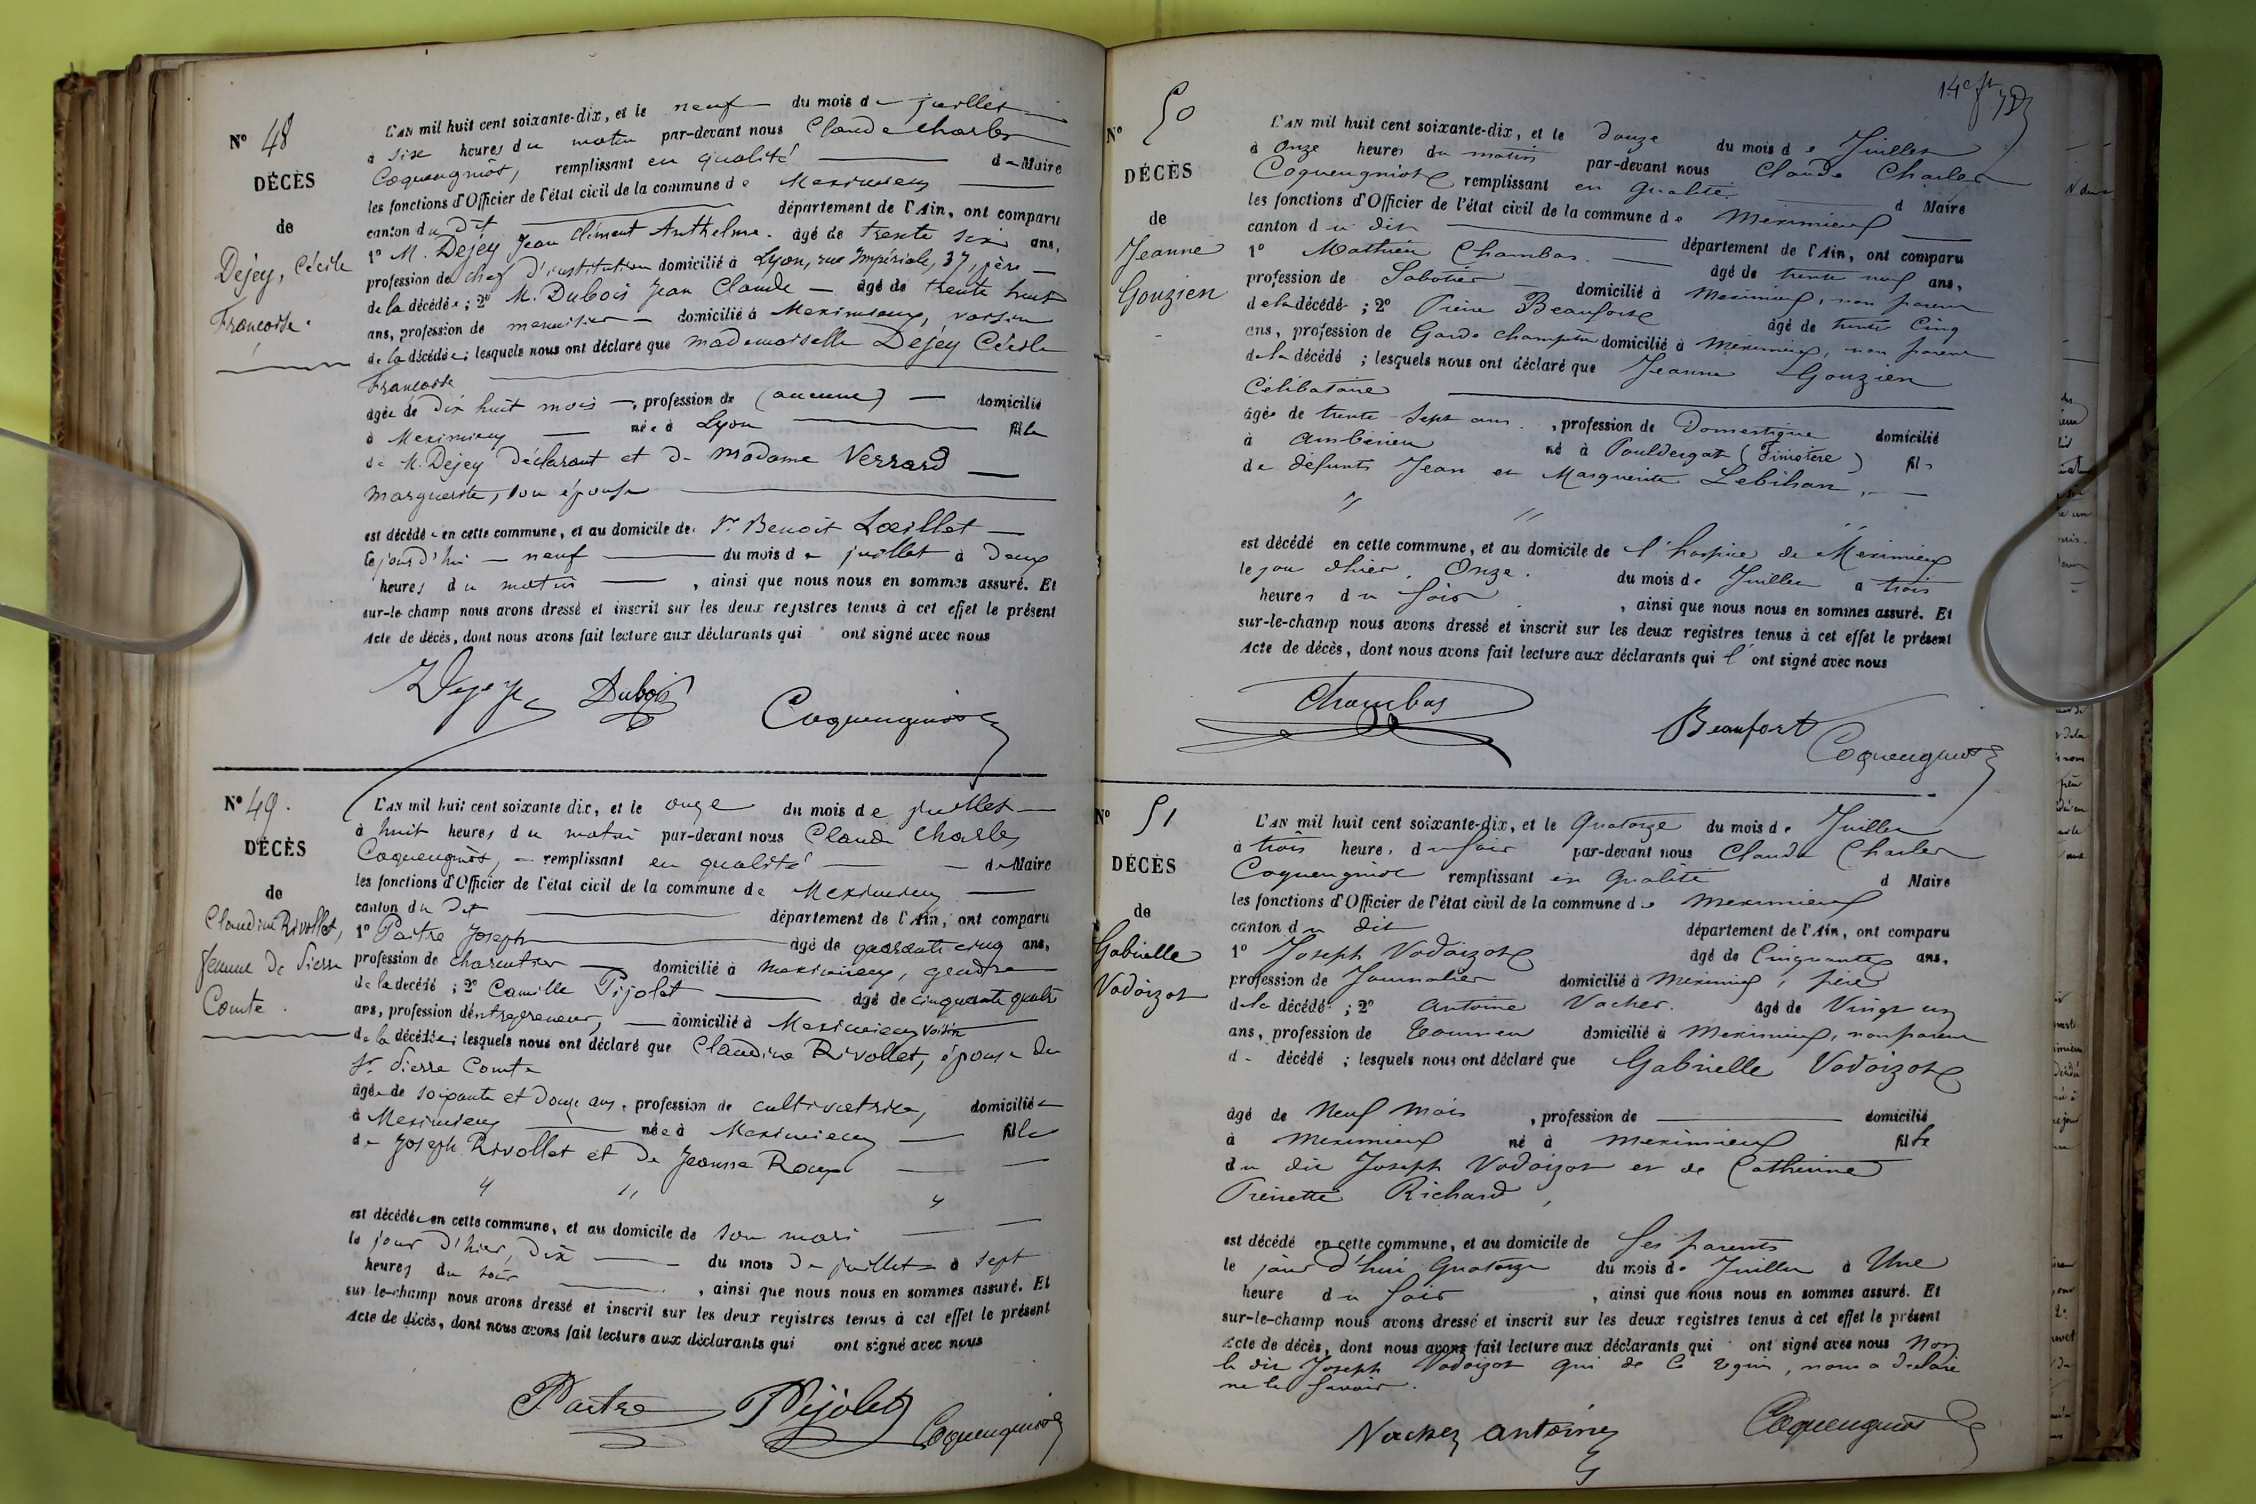 Nº 48
DÉCÈS
de
Dejey, Cécile
Françoise.
L'AN mil huit cent soixante-dix, et le neuf du mois de juillet
à six heures du matin par-devant nous Claude Charles
Coquengniot, remplissant en qualité de Maire
les fonctions d'Officier de l'état civil de la commune de Meximieux
canton du dit département de l'Ain, ont comparu
1º M. Dejey Jean Clément Anthelme. âgé de trente six ans,
profession de chef d'institution domicilié à Lyon, rue Impériale, 37, père
de la décédée; 2º M. Dubois Jean Claude âgé de trente huit
ans, profession de menuisier domicilié à Meximieux, voisin
de la décédée; lesquels nous ont déclaré que mademoiselle Dejey Cécile
Françoise
âgée de dix huit mois, profession de (aucune) domicilié
à Meximieux née à Lyon fille
de M. Dejey déclarant et de madame Verrard
Marguerite, son épouse
est décédée en cette commune, et au domicile de Sr Benoit Lœillet
le jourd'hui neuf du mois de juillet à deux
heures du matin, ainsi que nous nous en sommes assuré. Et
sur-le-champ nous avons dressé et inscrit sur les deux registres tenus à cet effet le présent
Acte de décès, dont nous avons fait lecture aux déclarants qui ont signé avec nous
Dejey Dubois Coquengniot
Nº 49.
DÉCÈS
de
Claudine Rivollet,
femme de Pierre
Comte.
L'AN mil huit cent soixante dix, et le onze du mois de juillet
à huit heures du matin par-devant nous Claude Charles
Coquengniot, remplissant en qualité de Maire
les fonctions d'Officier de l'état civil de la commune de Meximieux
canton du dit département de l'Ain, ont comparu
1º Paitre Joseph âgé de quarante cinq ans,
profession de charpentier domicilié à Meximieux, gendre
de la décédé; 2º Camille Pijolet âgé de cinquante quatre
ans, profession d'entrepreneur, domicilié à Meximieux voisin
de la décédée; lesquels nous ont déclaré que Claudine Rivollet, épouse du
Sr Pierre Comte
âgée de soixante et douze ans, profession de cultivatrice, domiciliée
à Meximieux née à Meximieux fille
de Joseph Rivollet et de Jeanne Roux
" " "
est décédée en cette commune, et au domicile de son mari
le jour d'hier, dix du mois de juillet à sept
heures du soir, ainsi que nous nous en sommes assuré. Et
sur-le-champ nous avons dressé et inscrit sur les deux registres tenus à cet effet le présent
Acte de décès, dont nous avons fait lecture aux déclarants qui ont signé avec nous
Paitre Pijolet Coquengniot
Nº 50
DÉCÈS
de
Jeanne
Gouzien
L'AN mil huit cent soixante-dix, et le douze du mois de Juillet
à Onze heures du matin par-devant nous Claude Charles
Coquengniot remplissant en qualité d Maire
les fonctions d'Officier de l'état civil de la commune de Meximieux
canton du dit département de l'Ain, ont comparu
1º Mathieu Chambas. âgé de trente neuf ans,
profession de Sabotier domicilié à Meximieux, non parent
de la décédé; 2º Pierre Beaufort âgé de trente Cinq
ans, profession de Garde champêtre domicilié à Meximieux, non parent
de la décédé; lesquels nous ont déclaré que Jeanne Gouzien
Célibataire
âgée de trente-sept ans., profession de Domestique domicilié
à Ambérieu né à Pouldergat (Finistère) fil
de défunts Jean et Marguerite Lebihan,
" "
est décédé en cette commune, et au domicile de l'hospice de Meximieux
le jour d'hier, Onze. du mois de Juillet à trois
heures du soir, ainsi que nous nous en sommes assuré. Et
sur-le-champ nous avons dressé et inscrit sur les deux registres tenus à cet effet le présent
Acte de décès, dont nous avons fait lecture aux déclarants qui l'ont signé avec nous
Chambas Beaufort Coquengniot
Nº 51
DÉCÈS
de
Gabrielle
Vadoizot
L'AN mil huit cent soixante-dix, et le Quatorze du mois de Juillet
à trois heures du soir par-devant nous Claude Charles
Coquengniot remplissant en Qualité d Maire
les fonctions d'Officier de l'état civil de la commune de Meximieux
canton du dit département de l'Ain, ont comparu
1º Joseph Vadoizot âgé de Cinquante ans,
profession de Journalier domicilié à Meximieux, père
de la décédé; 2º Antoine Vacher. âgé de Vingt un
ans, profession de Tourneur domicilié à Meximieux, non parent
d décédé; lesquels nous ont déclaré que Gabrielle Vadoizot
âgé de Neuf mois, profession de domicilié
à Meximieux né à Meximieux fille
du dit Joseph Vadoizot et de Catherine
Pierrette Richard,
est décédé en cette commune, et au domicile de ses parents
le jour d'hui Quatorze du mois de Juillet à Une
heure du soir, ainsi que nous nous en sommes assuré. Et
sur-le-champ nous avons dressé et inscrit sur les deux registres tenus à cet effet le présent
Acte de décès, dont nous avons fait lecture aux déclarants qui ont signé avec nous Non
le dit Joseph Vadoizot qui de ce requis, nous a déclaré
ne le savoir.
Vacher Antoine Coquengniot